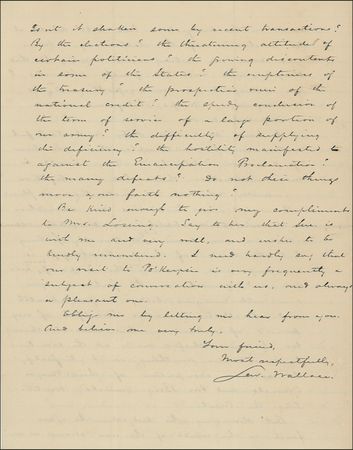 Isn't it shaken some by recent transactions?
By the elections? the threatening attitude of
certain politicians? the growing discontents
in some of the States? the emptiness of
the treasury? the prospective ruin of the
national credit? the speedy conclusion of
the term of service of a large portion of
our army? the difficulty of supplying
the deficiency? the hostility manifested to
against the Emancipation Proclamation?
the many defeats? Do not these things
move your faith nothing?
Be kind enough to give my compliments
to Mrs. Lossing. Say to her that Sue is
with me and very well, and wishes to be
kindly remembered. I need hardly say that
our visit to Po'Keepsie is very frequently a
subject of conversation with us, and always
a pleasant one.
Oblige me by letting me hear from you.
And believe me very truly,
Your friend,
Most respectfully,
Lew. Wallace.